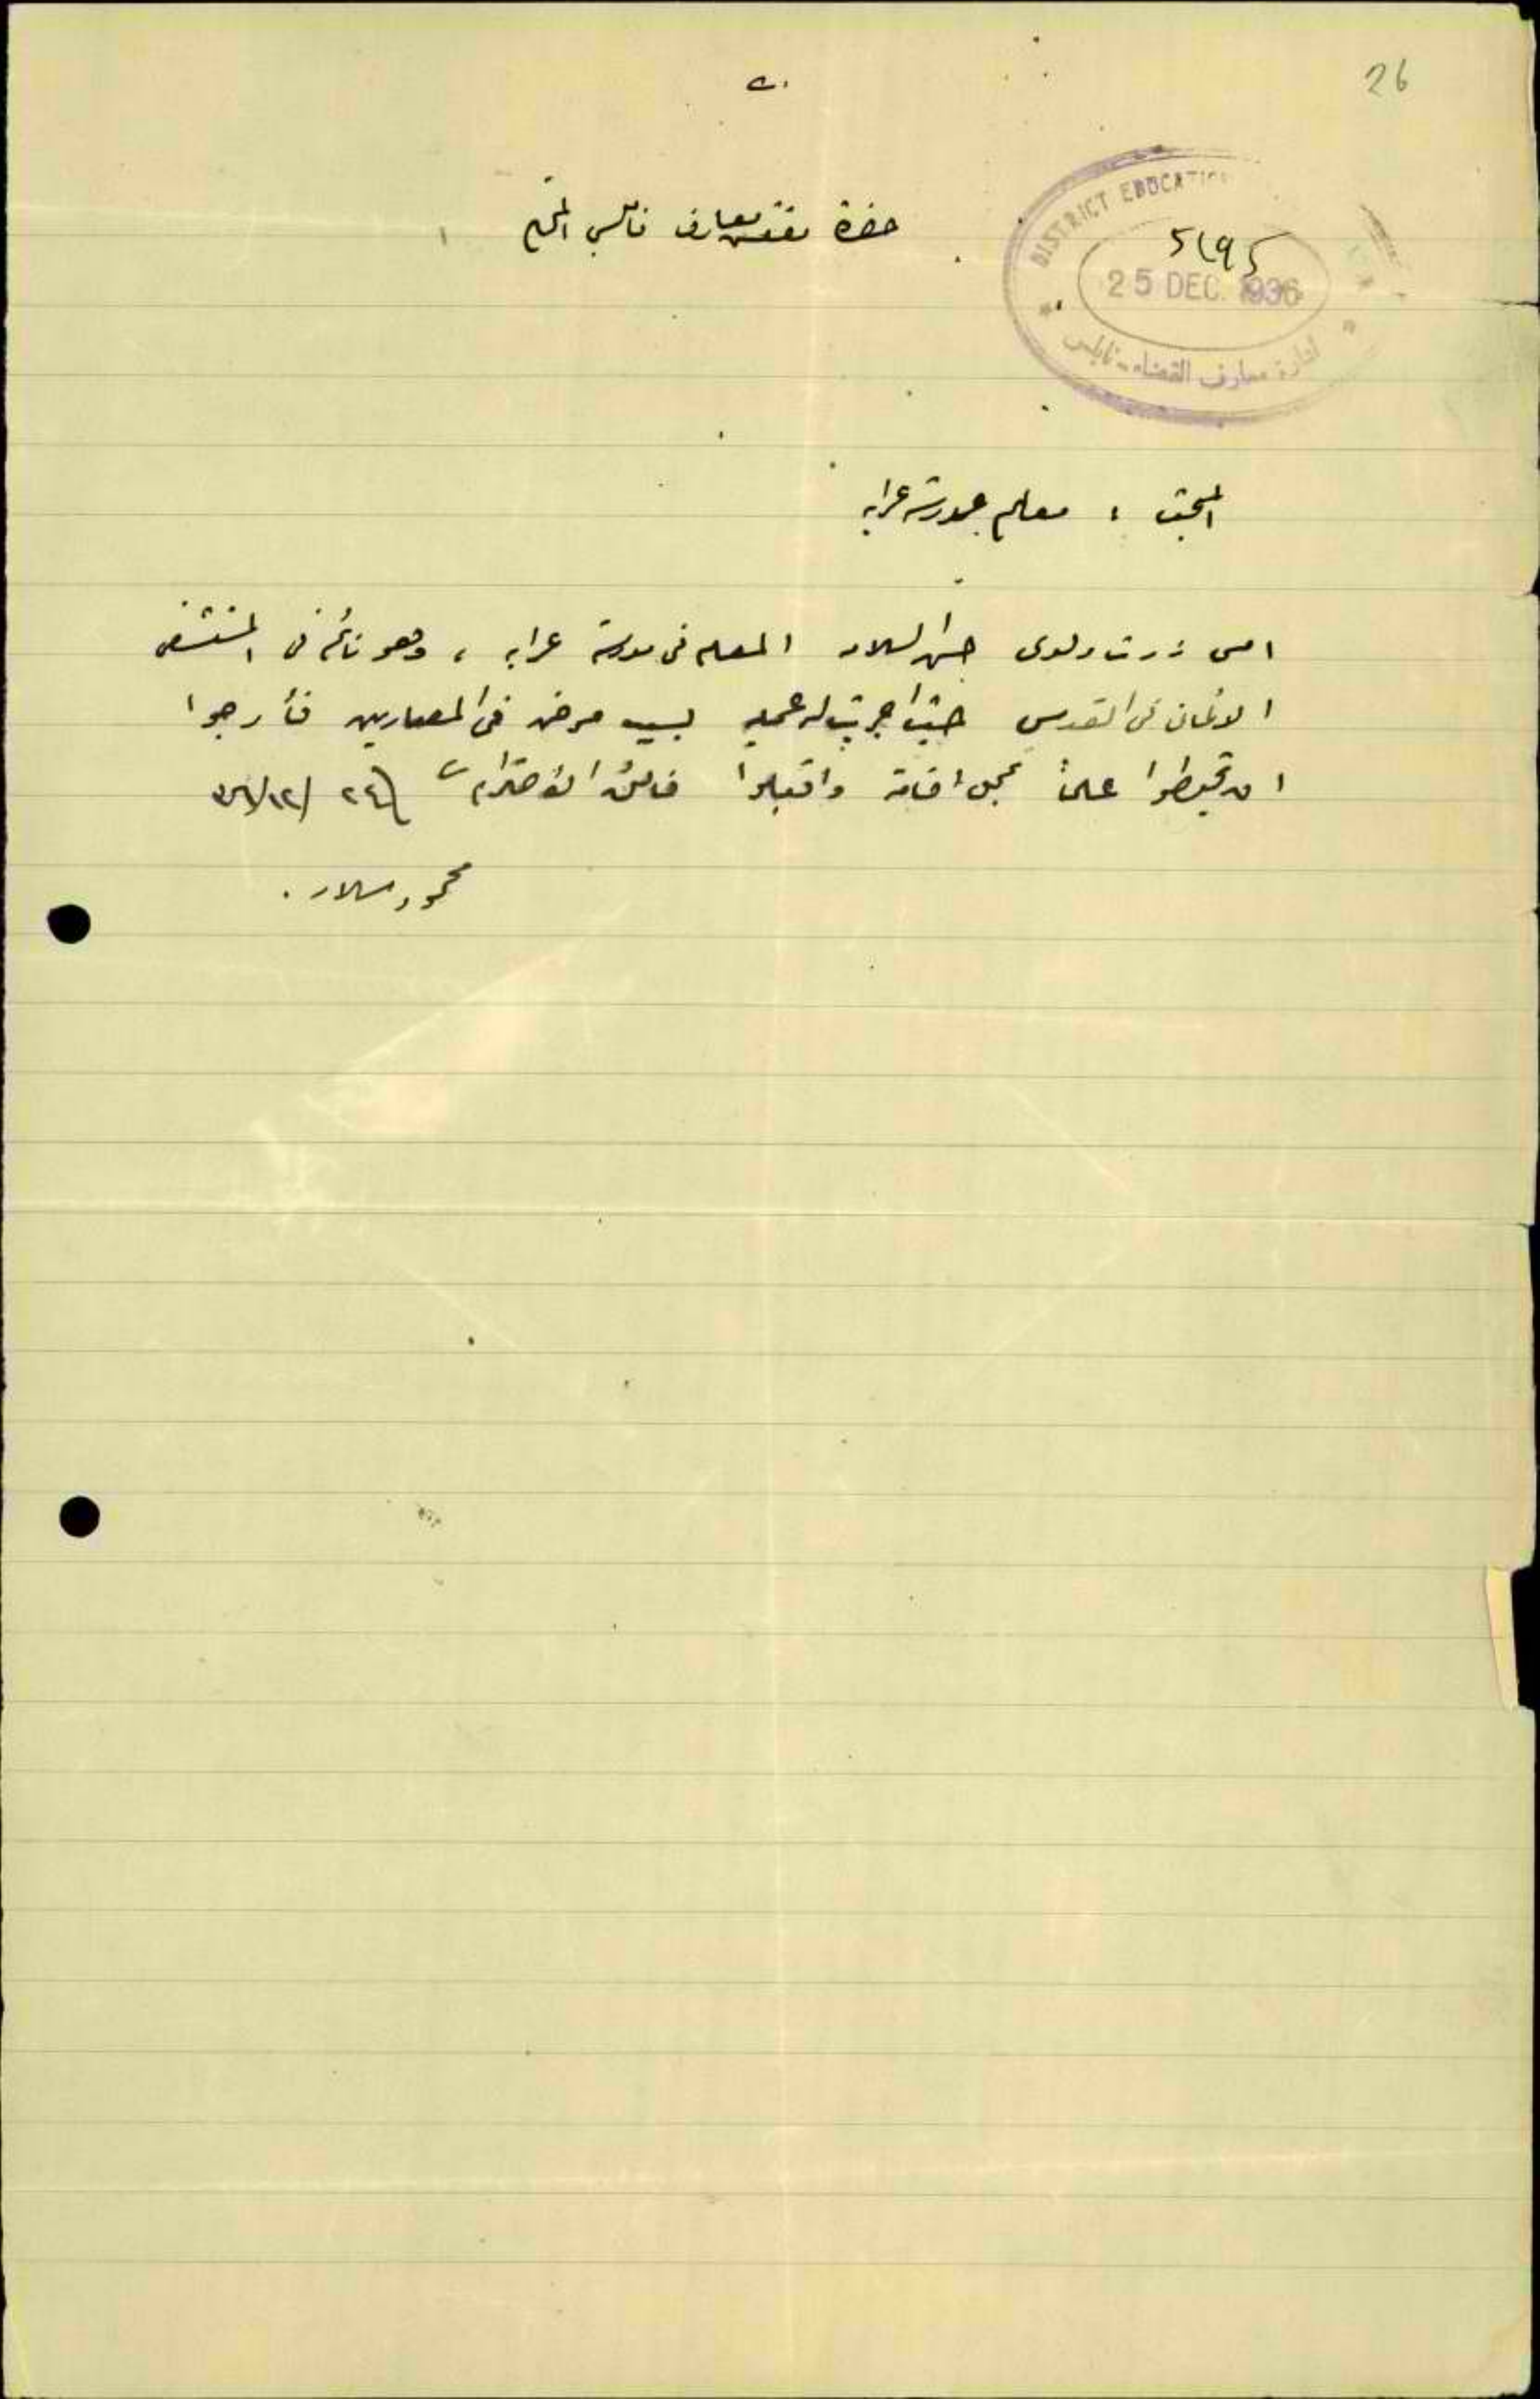 26
حضرة مفتش معارف نابلس المحترم
DISTRICT EDUCATION
5695
25 DEC. 1936
ادارة معارف القضاء - نابلس
المبحث : معلم بمدرسة عرابه
امس زرت ولدي حسن السلامه المعلم في مدرسة عرابه ، وهو نائم في المستشفى
الالماني في القدس حيث اجريت له عمليه بسبب مرض في المصارين فأرجوا
ان تحيطوا علماً بمحل اقامته واقبلوا فائق الاحترام ٢٤/١٢/٣٦
محمود سلامه .